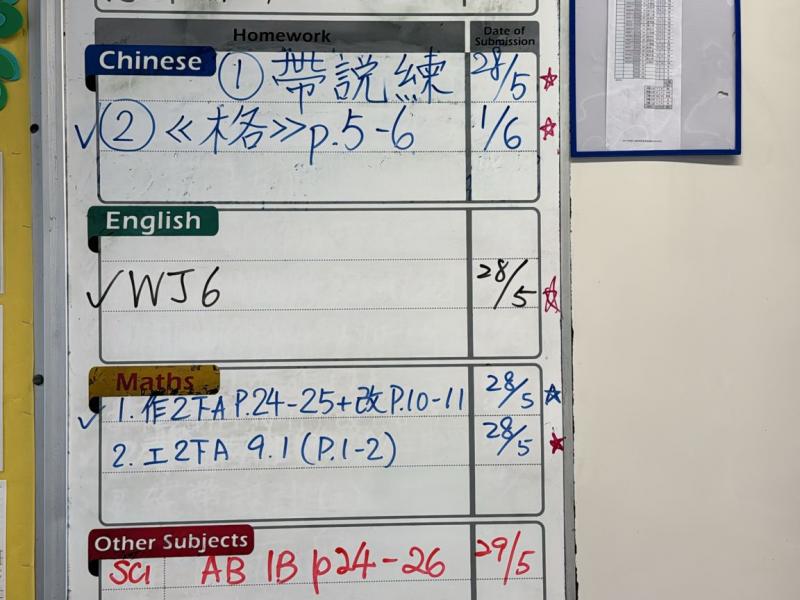 Homework Date of Submission
Chinese
① 帶説練 28/5
② 《格》p.5-6 1/6
English
WJ6 28/5
Maths
1. 作2下A P.24-25+改P.10-11 28/5
2. 工2下A 9.1 (P.1-2) 28/5
Other Subjects
SCI AB 1B p24-26 29/5